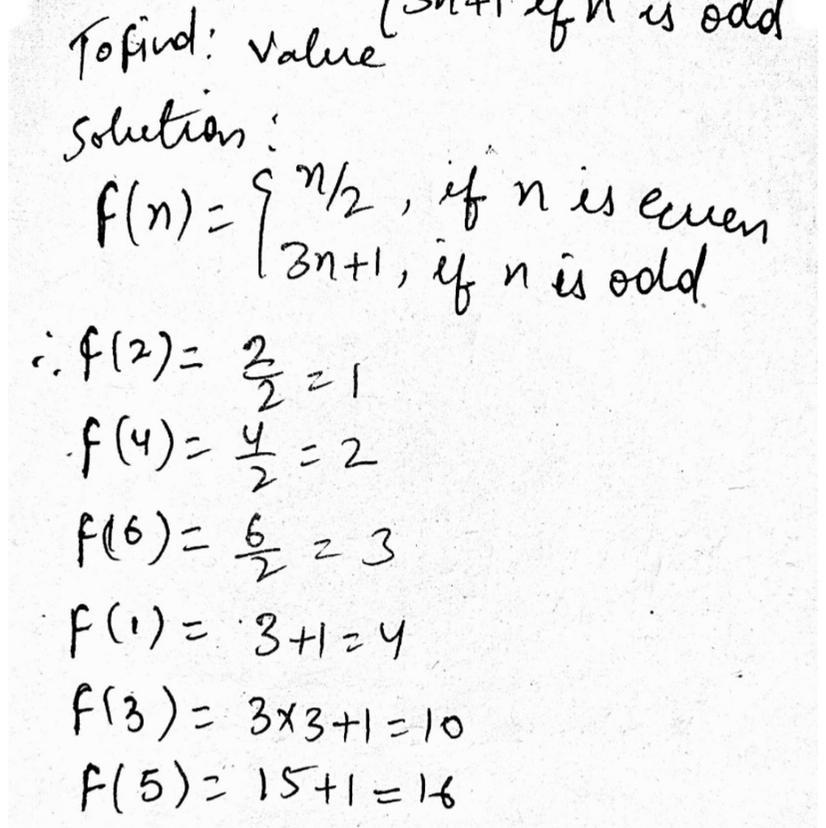 {3n+1 if n is odd
To find: Value
Solution:
f(n) = { n/2, if n is even
3n+1, if n is odd
∴ f(2) = 2/2 = 1
f(4) = 4/2 = 2
f(6) = 6/2 = 3
f(1) = 3+1 = 4
f(3) = 3×3+1 = 10
f(5) = 15+1 = 16